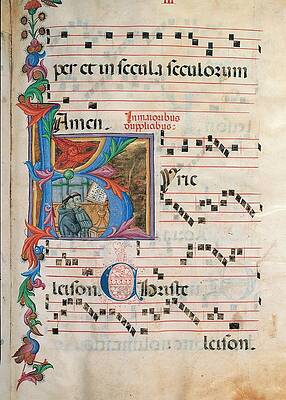 III
per et in secula seculorum
Amen. In maioribus
dupplicibus:
Kyrie
leison. Christe
leison.